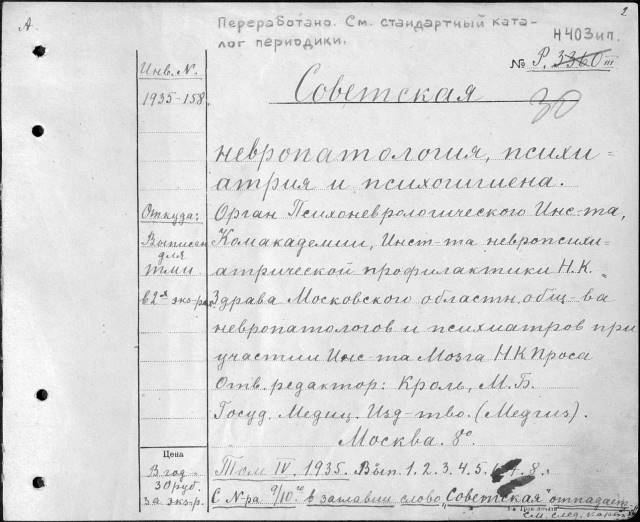 А.
2
Переработано. См. стандартный ката-
лог периодики.
Н403ип.
№ Р. 3360 III
Инв. №.
1935-158.
Советская
30
невропатология, психи=
атрия и психогигиена.
Откуда:
Выписан
для
тми
в 2х экз-рах
Орган Психоневрологического Инс-та,
Комакадемии, Инст-та невропсихи-
атрической профилактики Н.К.
Здрава Московского областн. общ-ва
невропатологов и психиатров при
участии Инс-та Мозга НКПроса
Отв. редактор: Кроль, М.Б.
Госуд. Медиц. Изд-тво. (Медгиз).
Москва. 8°.
Цена
В год
30 руб.
за экз-р.
Том IV. 1935. Вып. 1. 2. 3. 4. 5. 7. 8.
С №-ра 9/10го в заглавии слово „Советская" отпадает.
См. след. карт.